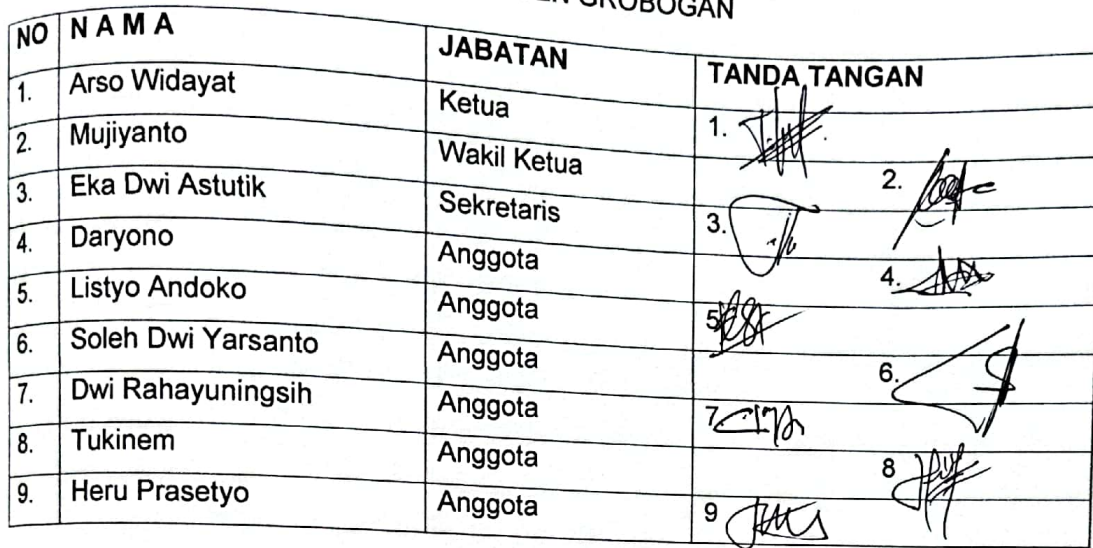 GROBOGAN
NO N A M A JABATAN TANDA TANGAN
1. Arso Widayat Ketua 1.
2. Mujiyanto Wakil Ketua 2.
3. Eka Dwi Astutik Sekretaris 3.
4. Daryono Anggota 4.
5. Listyo Andoko Anggota 5
6. Soleh Dwi Yarsanto Anggota 6.
7. Dwi Rahayuningsih Anggota 7
8. Tukinem Anggota 8
9. Heru Prasetyo Anggota 9